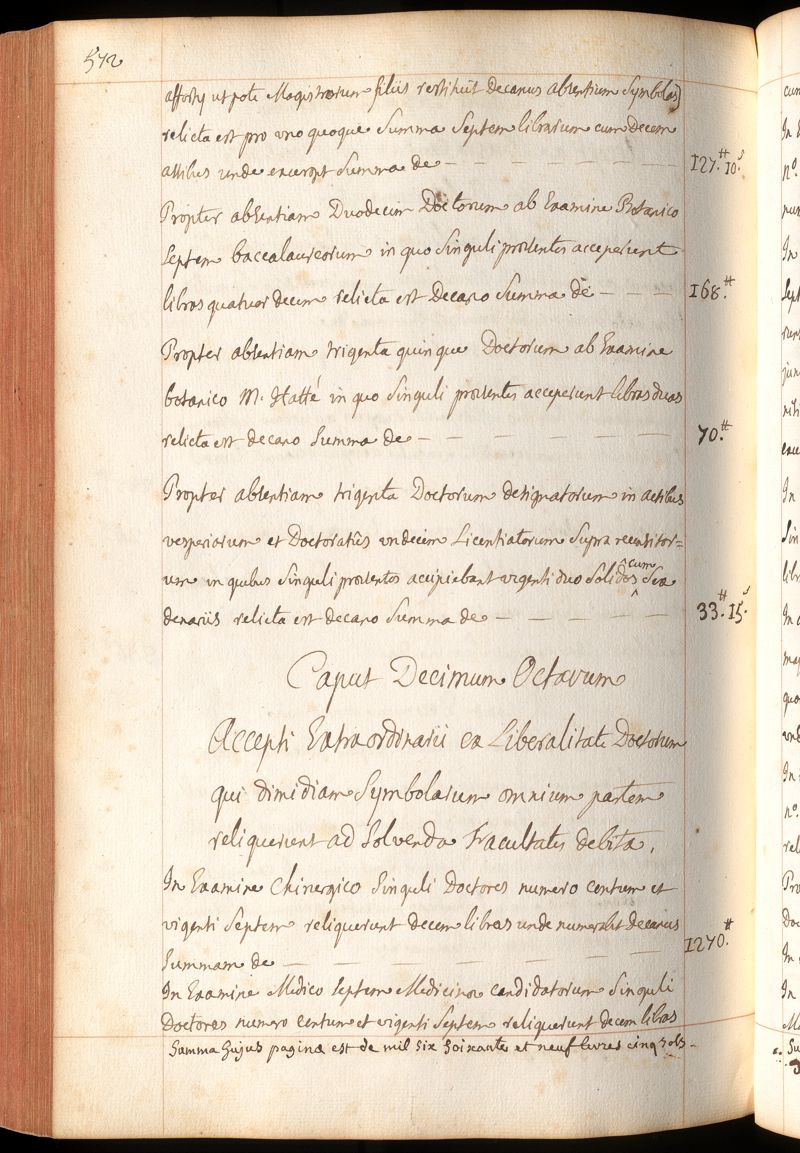 572
ut pote Magistrorum filiis restituit decanus absentium Symbolas)
relicta est pro uno quoque Summa Septem librarum cum decem
assibus unde exurgit Summa de — 127.# 10.s
Propter absentiam Duodecim Doctorum ab Examine Botanico
Septem baccalaureorum in quo Singuli præsentes acceperunt
libras quatuor decim relicta est Decano Summa de — 168.#
Propter absentiam trigenta quinque Doctorum ab Examine
botanico M. Hatté in quo Singuli præsentes acceperunt libras duas
relicta est decano Summa de — 70.#
Propter absentiam trigenta Doctorum designatorum in actibus
vesperiarum et Doctoratûs undecim Licentiatorum Supra recensitor=
um in quibus Singuli præsentes accipiebant vigenti duo Solidos cum Sex
denariis relicta est decano Summa de — 33.# 15.s
Caput Decimum Octavum
Accepti Extraordinarii ex Liberalitate Doctorum
qui dimidiam Symbolarum omnium partem
reliquerunt ad Solvenda Facultatis debita.
In Examine Chirurgico Singuli Doctores numero centum et
vigenti Septem reliquerunt decem libras unde numerabit decanus
Summam de — 1270.#
In Examine Medico Septem Medicinæ candidatorum Singuli
Doctores numero centum et vigenti Septem reliquerunt decem libras
Summa hujus paginæ est de mil Six Soixante et neuf livres cinq sols-